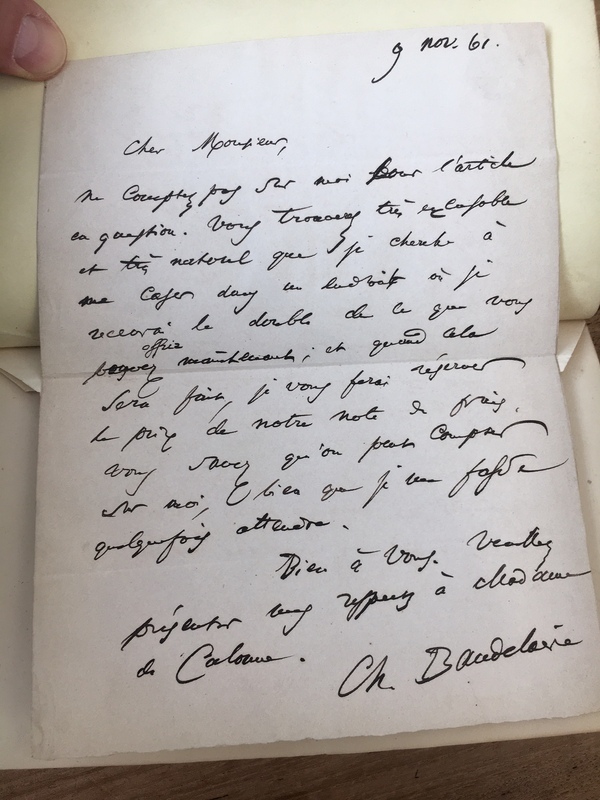 9 nov. 61.
Cher Monsieur,
ne comptez pas sur moi pour l'article
en question. Vous trouverez très excusable
et très naturel que je cherche à
me caser dans un endroit où je
recevrai le double de ce que vous
offriez
payez maintenant ; et quand cela
sera fait, je vous ferai réserver
le prix de notre note de frais.
Vous savez qu'on peut compter
sur moi, bien que je me fasse
quelquefois attendre.
Bien à vous. Veuillez
présenter mes respects à Madame
de Calonne.
Ch. Baudelaire